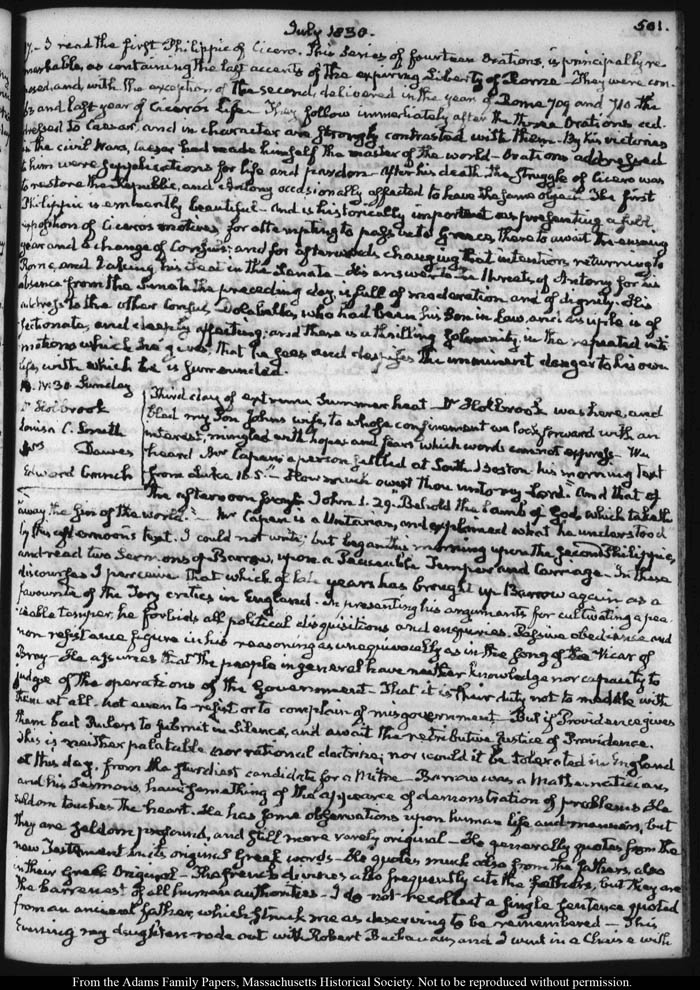 July 1830.
501.
17.- I read the first Philippic of Cicero. This series of fourteen Orations, is principally re-
markable, as containing the last accents of the expiring Liberty of Rome - They were com-
posed, and, with the exception of the second, delivered in the year of Rome 709 and 710 the
63 and last year of Cicero's life - They follow immediately after the three Orations ad-
dressed to Caesar, and in character are strongly contrasted with them - By his victories
in the civil Wars, Caesar had made himself the master of the world - Orations addressed
to him were supplications for life and pardon - After his death the struggle of Cicero was
to restore the Republic, and Antony occasionally affected to have the same object. The first
Philippic is eminently beautiful - And is historically important as presenting a full
exposition of Cicero's motives, for attempting to pass into Greece, there to await the ensuing
year and a change of Consuls: and for afterwards changing that intention, returning to
Rome, and taking his Seat in the Senate - His answer to the threats of Antony for his
absence from the Senate the preceding day, is full of moderation and of dignity. His
address to the other Consul, Dolabella, who had been his Son in Law, and is up to is of
fectionate, and deeply affecting: and there is a thrilling solemnity, in the repeated inti-
mations which he gives, that he sees and despises the imminent danger to his own
life, with which he is surrounded.
18. IV:30. Sunday
Dr Holbrook
Louisa C. Smith
Mrs Dawes
Edward Cranch
Third day of extreme Summer heat - Dr Holbrook was here, and
bled my Son John's wife, to whose confinement we look forward with an
interest, mingled with hopes and fears which words cannot express - We
heard Mr Capen, a person settled at South Boston his morning text
from Luke 16.5. "How much owest thou unto my Lord." And that of
the afternoon from John 1.29. "Behold the Lamb of God, which taketh
away the Sin of the world." - Mr Capen is a Unitarian, and explained what he understood
by this afternoon's text. I could not write; but began this morning upon the second Philippic,
and read two Sermons of Barrow, upon a Peaceable Temper and Carriage. In these
discourses I perceive that which of late years has brought up Barrow again as a
favourite of the Tory critics in England. In presenting his arguments for cultivating a pea-
ceable temper, he forbids all political disquisitions and enquiries. Passive obedience and
non resistance figure in his reasoning as unequivocally as in the song of the Vicar of
Bray - He assumes that the people in general have neither knowledge nor capacity to
judge of the operations of the Government - That it is their duty not to meddle with
them at all - not even to resist or to complain of misgovernment - But if Providence gives
them bad Rulers to submit in silence, and await the retributive justice of Providence.
This is neither palatable nor rational doctrine; nor would it be tolerated in England
at this day, from the sturdiest candidate for a Mitre - Barrow was a Mathematician,
and his Sermons, have something of the appearance of demonstration of problems. He
seldom touches the heart. He has some observations upon human life and manners, but
they are seldom profound, and still more rarely original - He generally quotes from the
new Testament in its original Greek words - He quotes much also from the fathers, also
in their Greek Original - The French divines also frequently cite the fathers, but they are
the barrenest of all human authorities - I do not recollect a single sentence quoted
from an ancient father, which struck me as deserving to be remembered - This
Evening my daughter rode out with Robert Buchanan, and I went in a Chaise with
From the Adams Family Papers, Massachusetts Historical Society. Not to be reproduced without permission.